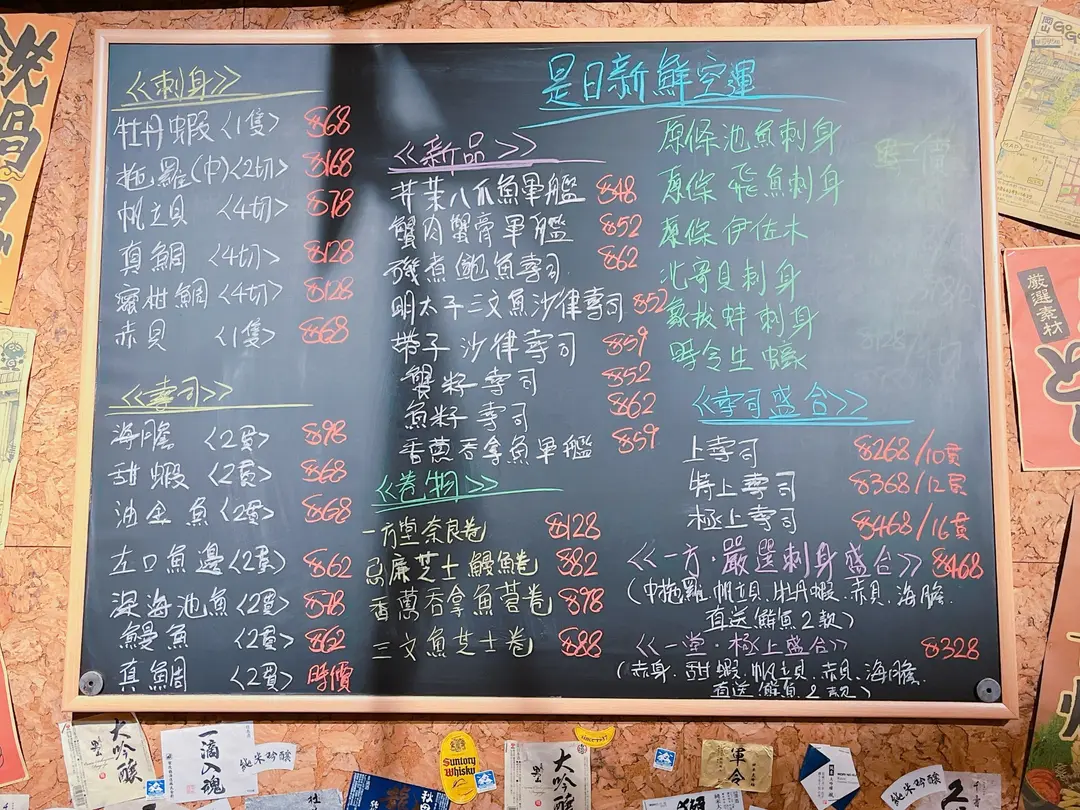 <<刺身>>
牡丹蝦 <1隻> $68
拖羅(中)<2切> $168
帆立貝 <4切> $78
真鯛 <4切> $128
蜜柑鯛 <4切> $128
赤貝 <1隻> $68
<<壽司>>
海膽 <2貫> $98
甜蝦 <2貫> $68
油金魚 <2貫> $68
左口魚邊 <2貫> $62
深海池魚 <2貫> $78
鰻魚 <2貫> $62
真鯛 <2貫> 時價
<<新品>>
芥茉八爪魚軍艦 $48
蟹肉蟹膏軍艦 $52
磯煮鮑魚壽司 $62
明太子三文魚沙律壽司 $52
帶子沙律壽司 $59
蟹籽壽司 $52
魚籽壽司 $62
香蔥吞拿魚軍艦 $59
<<卷物>>
一方堂奈良卷 $128
忌廉芝士鰻魚卷 $82
香蔥吞拿魚蓉卷 $98
三文魚芝士卷 $88
是日新鮮空運
原條池魚刺身
原條飛魚刺身
原條伊佐木
北寄貝刺身
象拔蚌刺身
時令生蠔
<<壽司盛合>>
上壽司 $268/10貫
特上壽司 $368/12貫
極上壽司 $468/16貫
<<一方·嚴選刺身盛合>> $468
(中拖羅.帆立貝.牡丹蝦.赤貝.海膽.
直送鮮魚2款)
<<一堂·極上盛合>> $328
(赤身.甜蝦.帆立貝.赤貝.海膽.
直送鮮魚2款)
厳選素材
岡山
大吟醸
一滴入魂
純米吟醸
Suntory
Whisky
大吟醸
軍令
純米吟醸